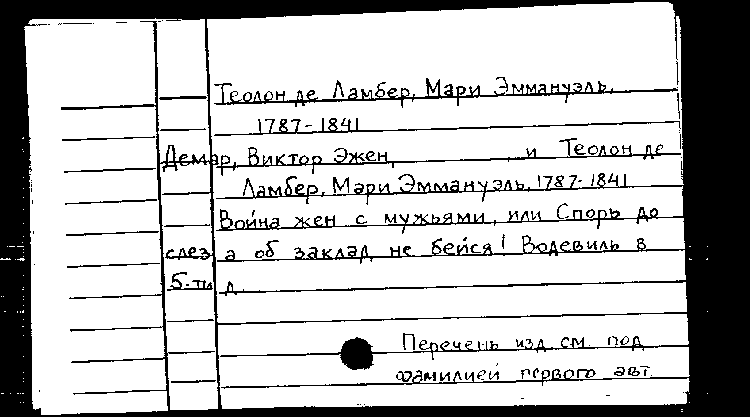 Теолон де Ламбер, Мари Эммануэль,
1787-1841
Демар, Виктор Эжен, и Теолон де
Ламбер, Мари Эммануэль, 1787-1841
Война жен с мужьями, или Спорь до
слез, а об заклад не бейся! Водевиль в
5-ти д.
Перечень изд. см. под
фамилией первого авт.